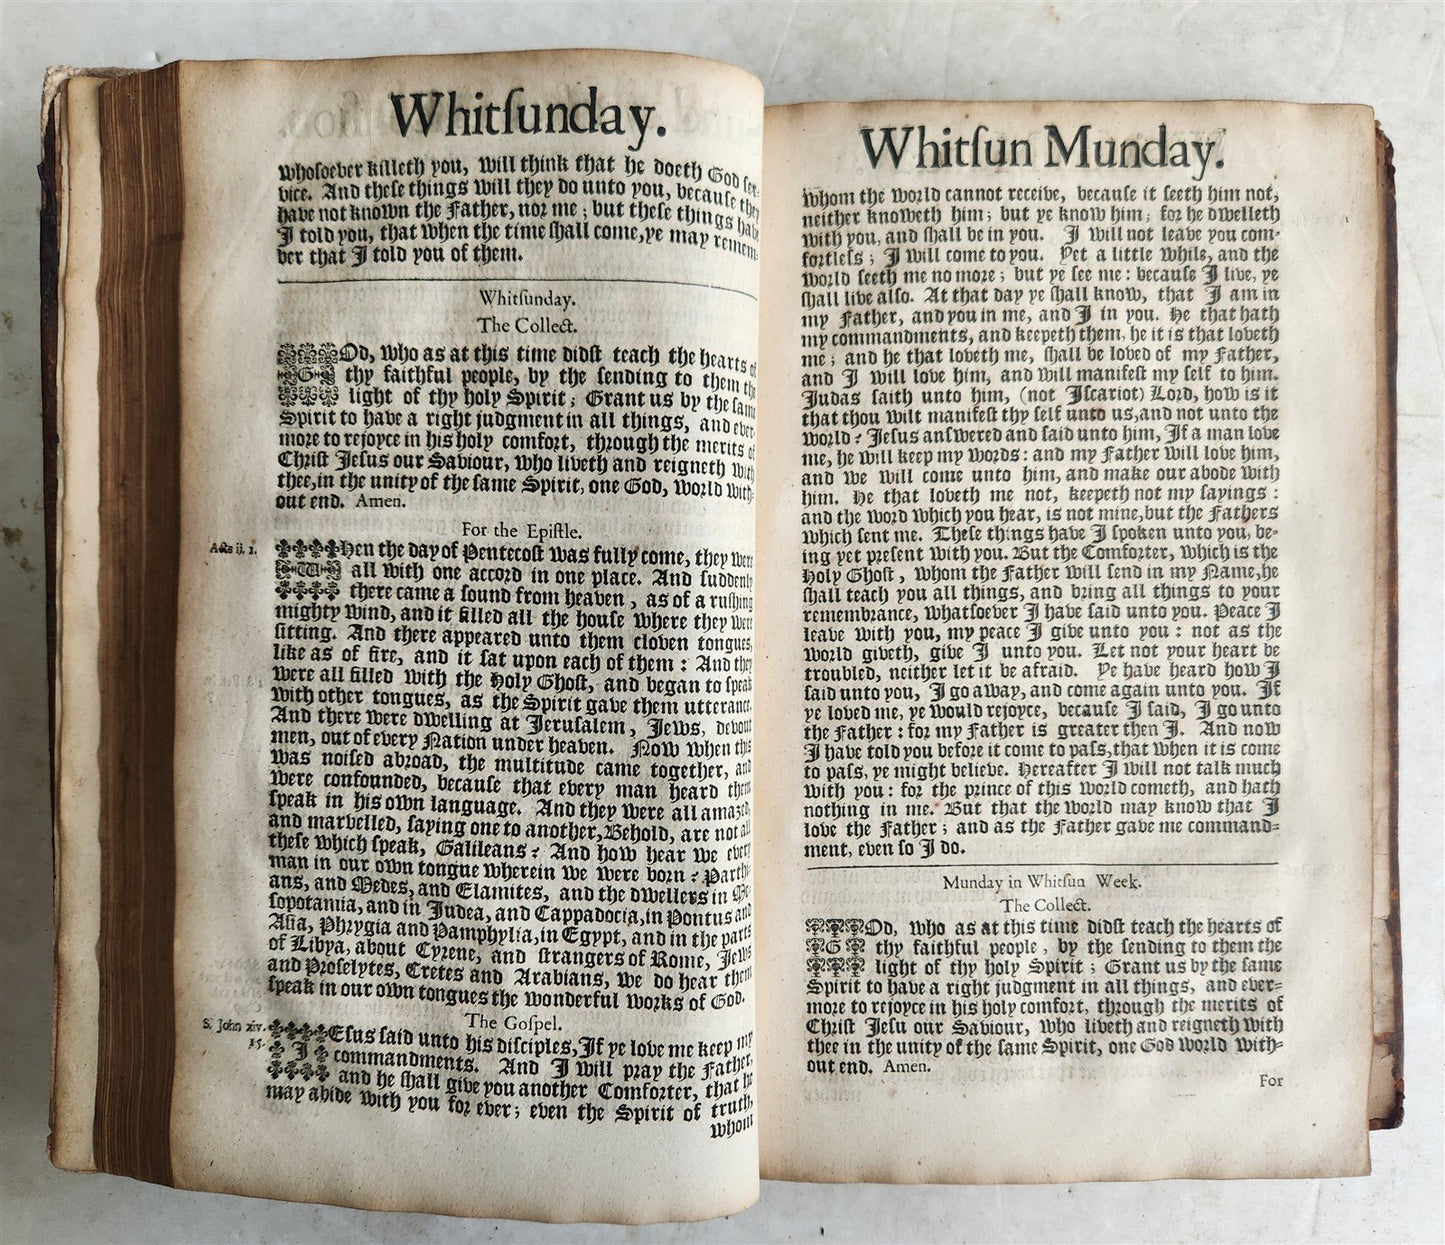 Whitſunday.
whoſoever killeth you, will think that he doeth God ſer-
vice. And theſe things will they do unto you, becauſe they
have not known the Father, nor me; but theſe things have
I told you, that when the time ſhall come, ye may remem-
ber that I told you of them.
Whitſunday.
The Collect.
GOd, who as at this time didſt teach the hearts of
thy faithful people, by the ſending to them the
light of thy holy Spirit; Grant us by the ſame
Spirit to have a right judgment in all things, and ever-
more to rejoyce in his holy comfort, through the merits of
Chriſt Jeſus our Saviour, who liveth and reigneth with
thee, in the unity of the ſame Spirit, one God, world with-
out end. Amen.
For the Epiſtle.
Acts ij. 1.
WHen the day of Pentecoſt was fully come, they were
all with one accord in one place. And ſuddenly
there came a ſound from heaven, as of a ruſhing
mighty wind, and it filled all the houſe where they were
ſitting. And there appeared unto them cloven tongues,
like as of fire, and it ſat upon each of them: And they
were all filled with the Holy Ghoſt, and began to ſpeak
with other tongues, as the Spirit gave them utterance.
And there were dwelling at Jeruſalem, Jews, devout
men, out of every Nation under heaven. Now when this
was noiſed abroad, the multitude came together, and
were confounded, becauſe that every man heard them
ſpeak in his own language. And they were all amazed,
and marvelled, ſaying one to another, Behold, are not all
theſe which ſpeak, Galileans? And how hear we every
man in our own tongue wherein we were born? Parthi-
ans, and Medes, and Elamites, and the dwellers in Me-
ſopotamia, and in Judea, and Cappadocia, in Pontus and
Aſia, Phrygia and Pamphylia, in Egypt, and in the parts
of Libya, about Cyrene, and ſtrangers of Rome, Jews
and Proſelytes, Cretes and Arabians, we do hear them
ſpeak in our own tongues the wonderful works of God.
The Goſpel.
S. John xiv.
15.
JEſus ſaid unto his diſciples, If ye love me keep my
commandments. And I will pray the Father,
and he ſhall give you another Comforter, that he
may abide with you for ever; even the Spirit of truth,
whom
Whitſun Munday.
whom the world cannot receive, becauſe it ſeeth him not,
neither knoweth him; but ye know him; for he dwelleth
with you, and ſhall be in you. I will not leave you com-
fortleſs; I will come to you. Yet a little while, and the
world ſeeth me no more; but ye ſee me: becauſe I live, ye
ſhall live alſo. At that day ye ſhall know, that I am in
my Father, and you in me, and I in you. He that hath
my commandments, and keepeth them, he it is that loveth
me; and he that loveth me, ſhall be loved of my Father,
and I will love him, and will manifeſt my ſelf to him.
Judas ſaith unto him, (not Iſcariot) Lord, how is it
that thou wilt manifeſt thy ſelf unto us, and not unto the
world? Jeſus anſwered and ſaid unto him, If a man love
me, he will keep my words: and my Father will love him,
and we will come unto him, and make our abode with
him. He that loveth me not, keepeth not my ſayings:
and the word which you hear, is not mine, but the Fathers
which ſent me. Theſe things have I ſpoken unto you, be-
ing yet preſent with you. But the Comforter, which is the
Holy Ghoſt, whom the Father will ſend in my Name, he
ſhall teach you all things, and bring all things to your
remembrance, whatſoever I have ſaid unto you. Peace I
leave with you, my peace I give unto you: not as the
world giveth, give I unto you. Let not your heart be
troubled, neither let it be afraid. Ye have heard how I
ſaid unto you, I go away, and come again unto you. If
ye loved me, ye would rejoyce, becauſe I ſaid, I go unto
the Father: for my Father is greater then I. And now
I have told you before it come to paſs, that when it is come
to paſs, ye might believe. Hereafter I will not talk much
with you: for the prince of this world cometh, and hath
nothing in me. But that the world may know that I
love the Father; and as the Father gave me command-
ment, even ſo I do.
Munday in Whitſun Week.
The Collect.
GOd, who as at this time didſt teach the hearts of
thy faithful people, by the ſending to them the
light of thy holy Spirit; Grant us by the ſame
Spirit to have a right judgment in all things, and ever-
more to rejoyce in his holy comfort, through the merits of
Chriſt Jeſu our Saviour, who liveth and reigneth with
thee in the unity of the ſame Spirit, one God world with-
out end. Amen.
For